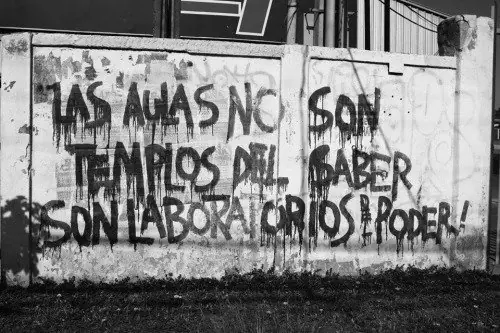 LAS AULAS NO SON
TEMPLOS DEL SABER
SON LABORATORIOS DE PODER!